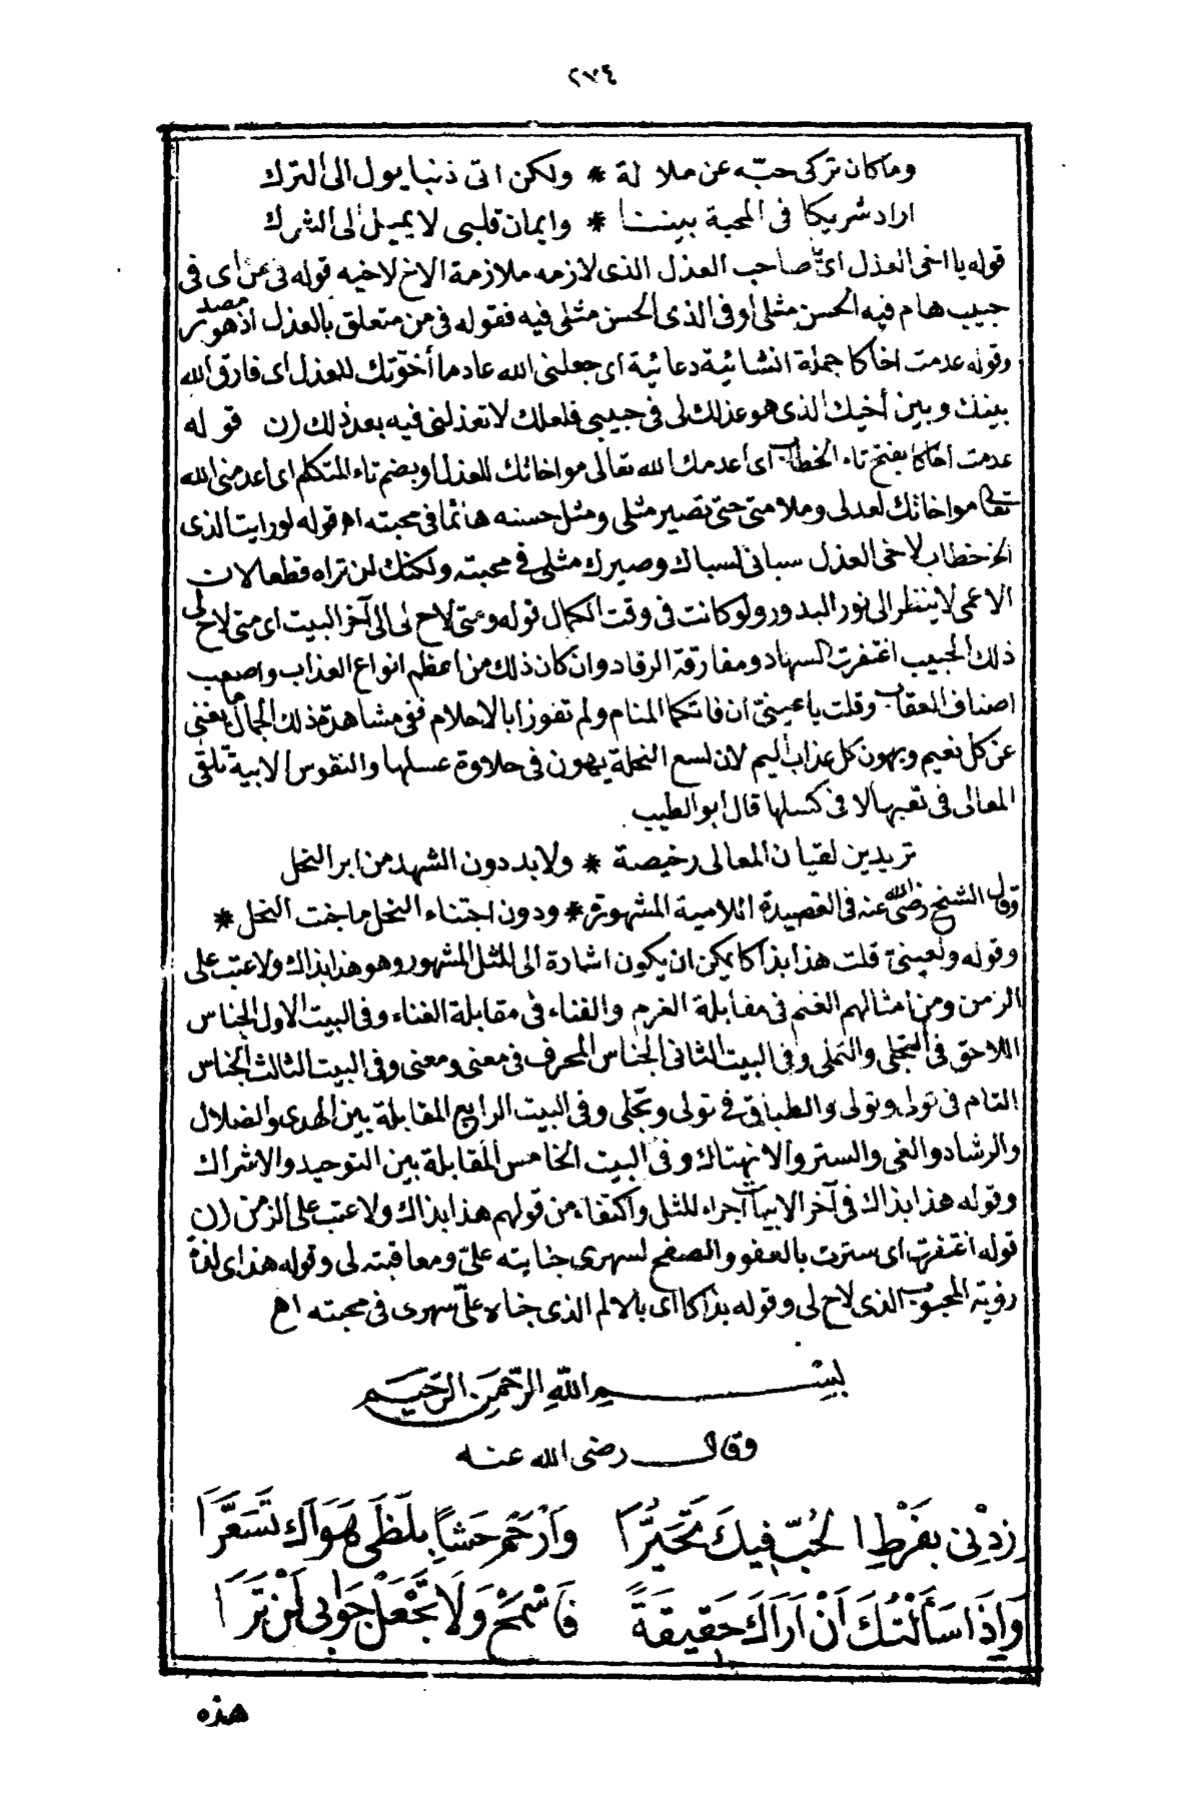 ٢٧٤
وما كان تركى حبّه عن ملالة * ولكن اتى ذنبا يول الى الترك
اراد شريكا فى المحبة بيننا * وايمان قلبى لا يميل الى الشرك
قوله يا اخى العذل اى يا صاحب العذل الذى لازمه ملازمة الاخ لاخيه قوله فى من اى فى
حبيب هام فيه الحسن مثلى او فى الذى الحسن مثلى فيه فقوله فى من متعلق بالعذل اذ هو مصدر
وقوله عدمت اخاكا جملة انشائية دعائية اى جعلنى الله عادما أخوّتك للعذل اى فارق الله
بينك وبين أخيك الذى هو عذلك لى فى حبيبى فلعلك لا تعذلنى فيه بعد ذلك (ن قوله
عدمت اخاكا بفتح تاء الخطاب اى أعدمك الله تعالى مواخاتك للعذل او بضم تاء المتكلم اى اعدمنى الله
تعالى مواخاتك لعذلى وملامتى حتى تصير مثلى ومثل حسنه هائما فى محبته اهـ قوله لو رايت الذى
الخ خطاب لاخى العذل سبانى لسباك وصيرك مثلى فى محبته ولكنك لن تراه قط لان
الاعمى لا ينظر الى نور البدور ولو كانت فى وقت الكمال قوله ومتى لاح لى الى آخر البيت اى متى لاح لى
ذلك الحبيب اغتفرت السهاد ومفارقة الرقاد وان كان ذلك من اعظم انواع العذاب واصعب
اصناف العقاب وقلت يا عينيّ ان فاتكما المنام ولم تفوزا بالاحلام ففى مشاهدة ذلك الجمال ما يغنى
عن كل نعيم ويهون كل عذاب أليم لان لسع النحلة يهون فى حلاوة عسلها والنفوس الابية تلقى
المعالى فى تعبها لا فى كسلها قال أبو الطيب
تريدين لقيان المعالى رخيصة * ولا بد دون الشهد من ابر النحل
وقال الشيخ رضى الله عنه فى القصيدة اللامية المشهورة * ودون اجتناء النحل ما جنت النحل *
وقوله ولعينيّ قلت هذا بذاكا يمكن ان يكون اشارة الى المثل المشهور وهو هذا بذاك ولا عتب على
الزمن ومن أمثالهم الغنم فى مقابلة الغرم والفناء فى مقابلة الغناء وفى البيت الاول الجناس
اللاحق فى التجلى والتملى وفى البيت الثانى الجناس المحرف فى معنى ومعنى وفى البيت الثالث الجناس
التام فى تولى وتولى والطباق فى تولى وتجلى وفى البيت الرابع المقابلة بين الهدى والضلال
والرشاد والغى والستر والانهتاك وفى البيت الخامس المقابلة بين التوحيد والاشراك
وقوله هذا بذاك فى آخر الابيات اجراء للمثل واكتفاء من قولهم هذا بذاك ولا عتب على الزمن (ن
قوله اغتفرت اى سترت بالعفو والصفح لسهرى جنايته علىّ ومعاقبته لى وقوله هذا اى لذة
رؤية المحبوب الذى لاح لى وقوله بذاكا اى بالالم الذى جناه علىّ سهرى فى محبته اهـ
بسم الله الرّحمن الرّحيم
وقال رضى الله عنه
زِدْنِى بِفَرْطِ الْحُبِّ فِيكَ تَحَيُّرًا وَارْحَمْ حَشًا بِلَظَى هَوَاكَ تَسَعَّرَا
وَاِذَا سَأَلْتُكَ أَنْ اَرَاكَ حَقِيقَةً فَاسْمَحْ وَلَا تَجْعَلْ جَوَابِى لَنْ تَرَا
هذه